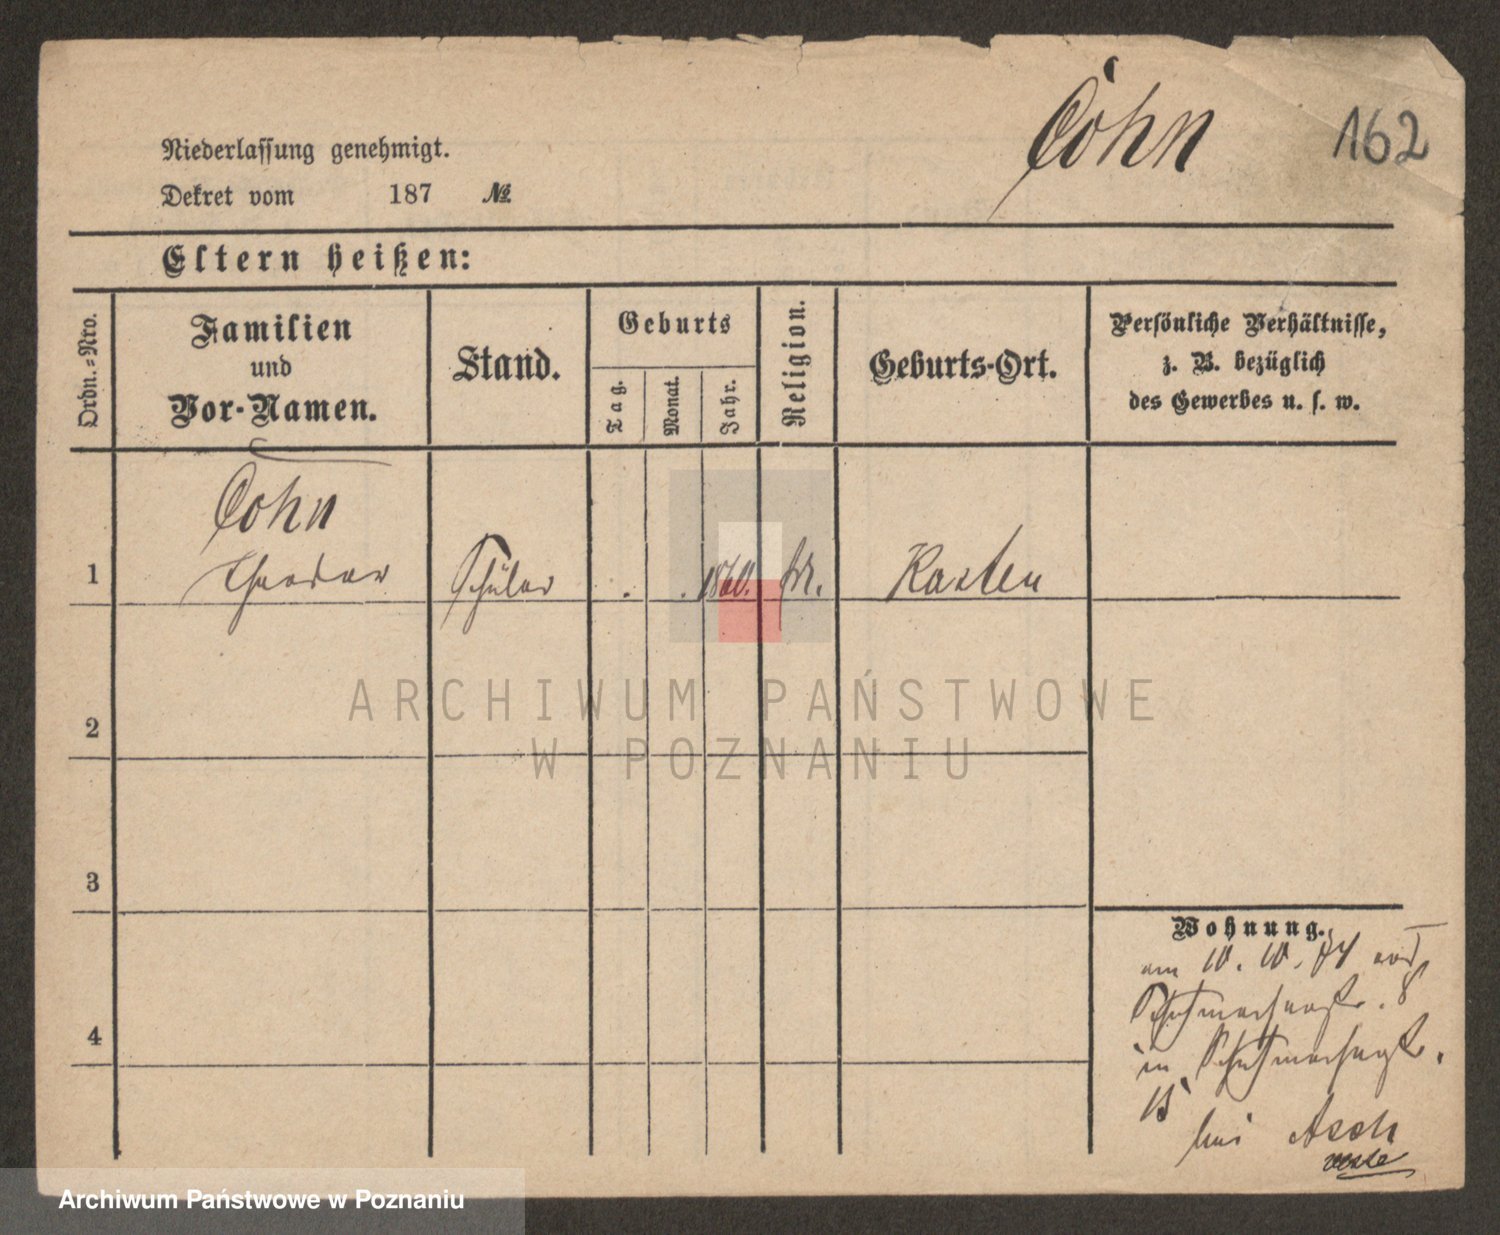 Cohn
162
Niederlassung genehmigt.
Dekret vom 187 №
Eltern heißen:
Ordn.-Nro.
Familien
und
Vor-Namen.
Stand.
Geburts
Tag.
Monat.
Jahr.
Religion.
Geburts-Ort.
Persönliche Verhältnisse,
z. B. bezüglich
des Gewerbes u. s. w.
Cohn
1 Theodor Schüler . . 1860. Kosten
2
ARCHIWUM PAŃSTWOWE
W POZNANIU
3
4
Wohnung.
am 10. 10. 74
Schuhmacherstr. 8
in Schuhmacherstr.
15
bei Asch
Archiwum Państwowe w Poznaniu